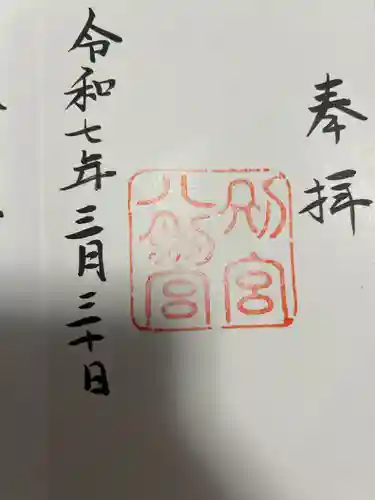 奉拝
別宮
八劔宮
令和七年三月三十日